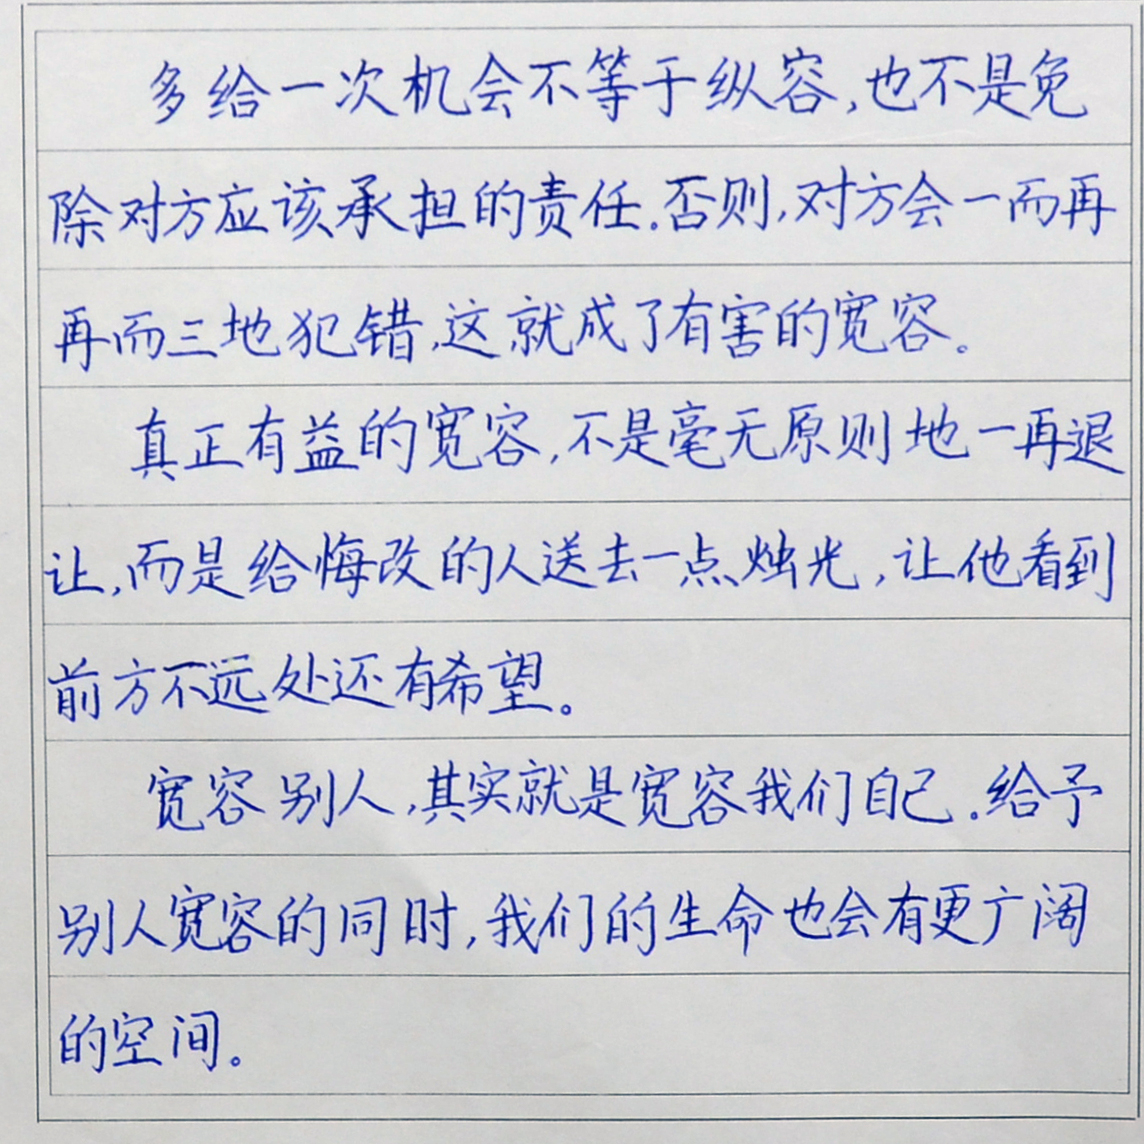 多给一次机会不等于纵容,也不是免
除对方应该承担的责任.否则,对方会一而再
再而三地犯错,这就成了有害的宽容。
真正有益的宽容,不是毫无原则地一再退
让,而是给悔改的人送去一点烛光,让他看到
前方不远处还有希望。
宽容别人,其实就是宽容我们自己.给予
别人宽容的同时,我们的生命也会有更广阔
的空间。